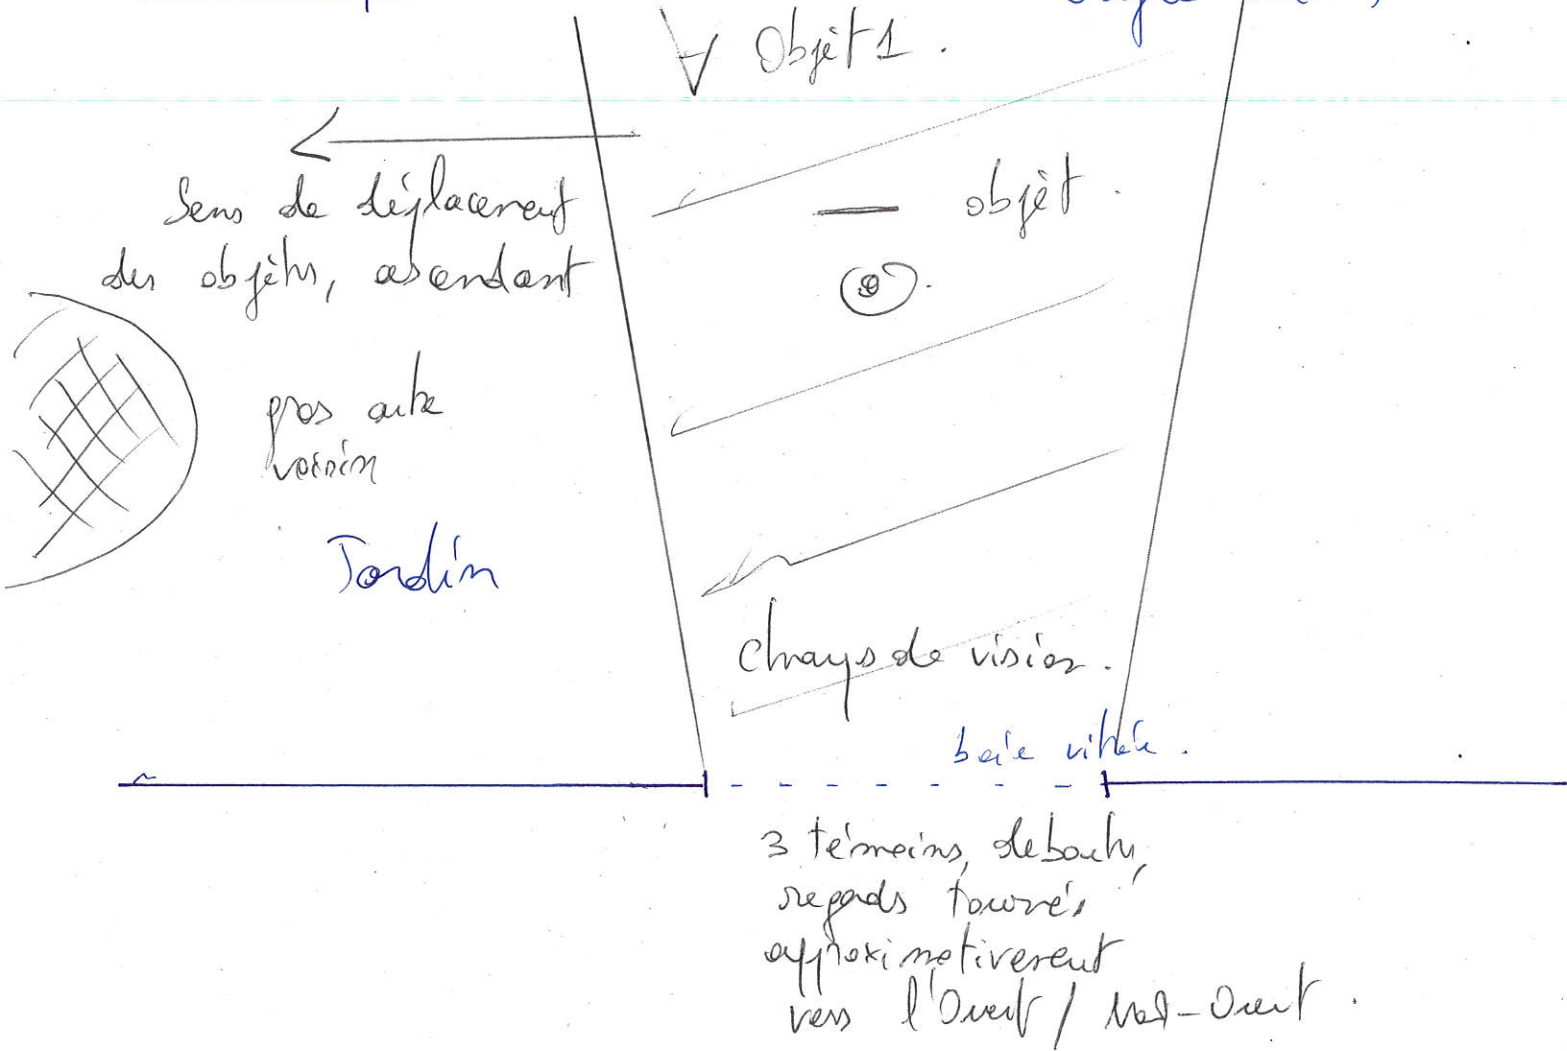 Objèt 1.
Sens de déplacement
des objèts, ascendant
objèt.
gros arbre
voisin
Jardin
champs de vision.
baie vitrée.
3 témoins, debouts,
regards tournés
approximativement
vers l'Ouest / Nord-Ouest.